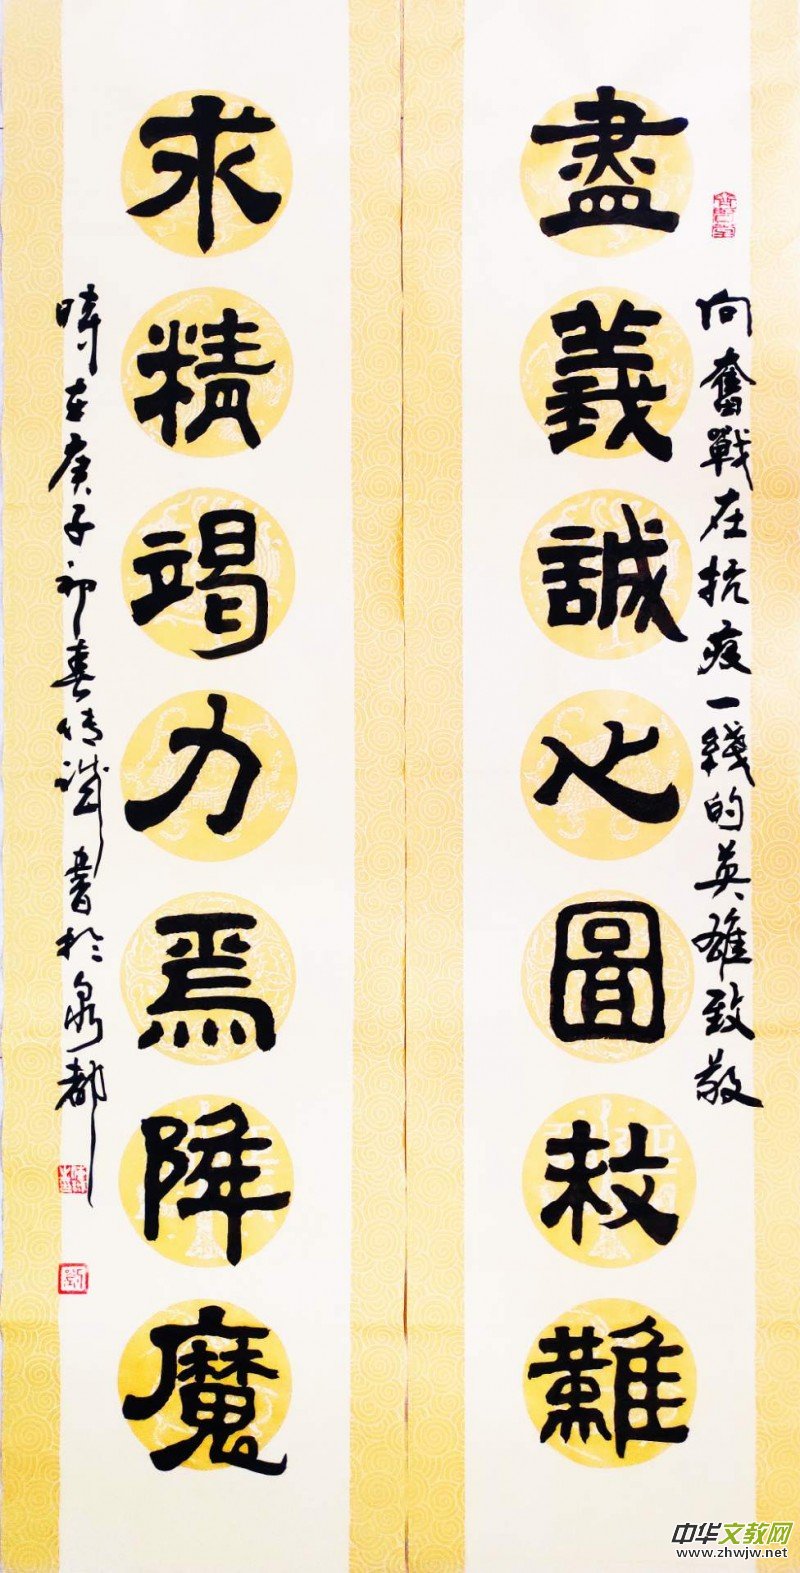 向奮戰在抗疫一綫的英雄致敬
盡義誠心圖救難
求精竭力焉降魔
時在庚子初春 書於泉都
中华文教网
www.zhwjw.net